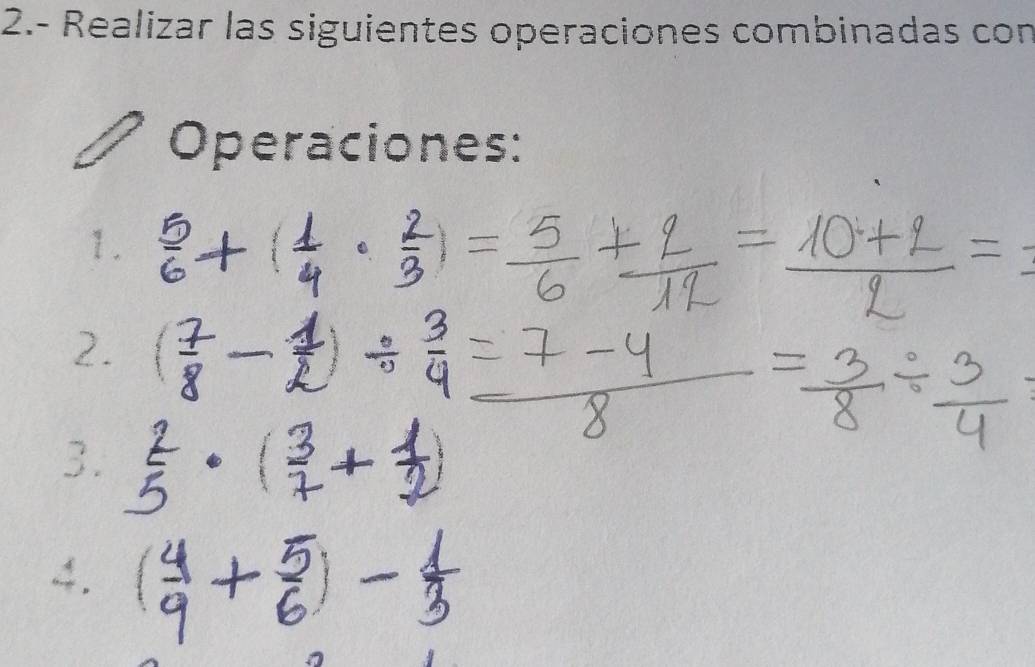 2.- Realizar las siguientes operaciones combinadas con
Operaciones:
1. 5/6 + (1/4 · 2/3) = 5/6 + 2/12 = (10+2)/2 =
2. (7/8 - 1/2) ÷ 3/4 = (7-4)/8 = 3/8 ÷ 3/4 =
3. 2/5 · (3/7 + 1/2)
4. (4/9 + 5/6) - 1/3